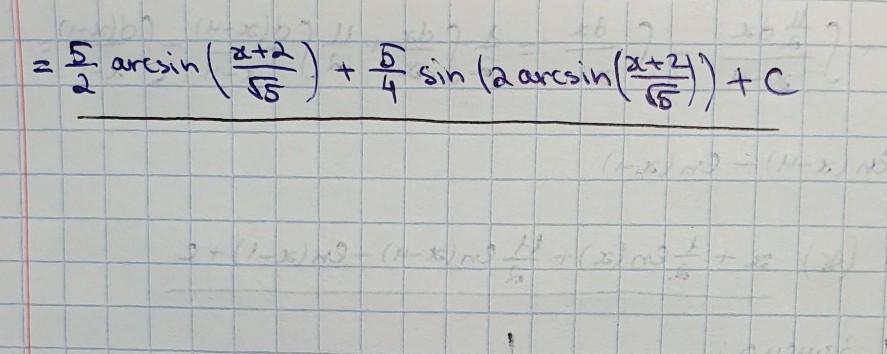 = 5/2 arcsin(x+2/√5) + 5/4 sin(2 arcsin(x+2/√5)) + C